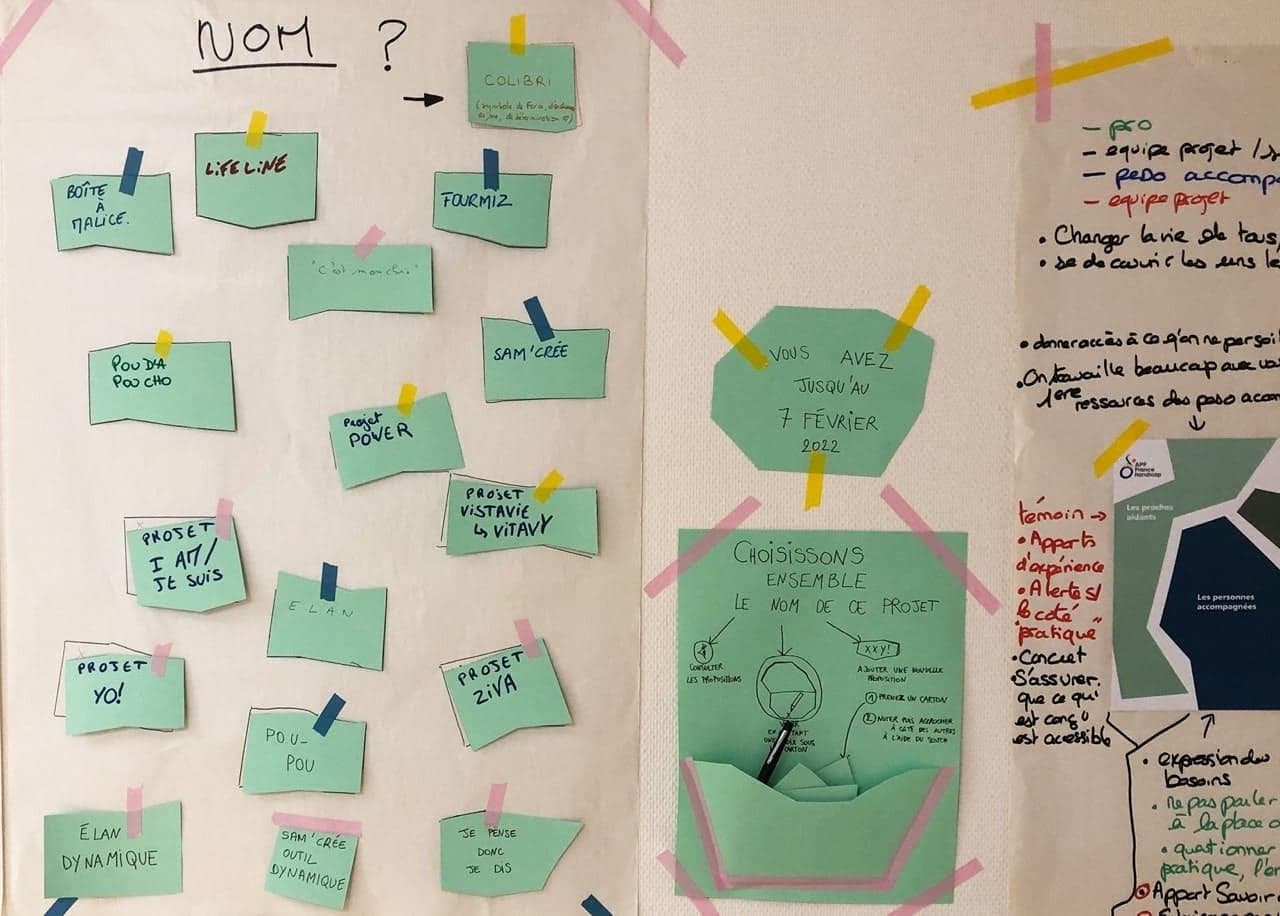 NOM ?
COLIBRI
LiFELiNE
BOÎTE
À
MALICE.
FOURMIZ
"C'est mon choix"
SAM'CRÉE
POUD'A
POUCHO
Projet
POWER
PROJET
VISTAVIE
↳ VITAVY
PROJET
I AM/
JE SUIS
ELAN
PROJET
YO!
PROJET
ZiVA
POU-
POU
ELAN
DYNAMIQUE
SAM'CRÉE
OUTIL
DYNAMIQUE
JE PENSE
DONC
JE DIS
VOUS AVEZ
JUSQU'AU
7 FÉVRIER
2022
CHOISISSONS
ENSEMBLE
LE NOM DE CE PROJET
CONSULTER
LES PROPOSITIONS
XXY!
AJOUTER UNE NOUVELLE
PROPOSITION
① PRENEZ UN CARTON
② NOTER PUIS ACCROCHER
À CÔTÉ DES AUTRES
À L'AIDE DU SCOTCH
- pro
- equipe projet /
- peDo accomp
- equipe projet
• Changer la vie de tous,
• se découvrir les uns le
• donner accès à ce qu'on ne perçoit
• On travaille beaucoup avec
1ere ressources des peso accom
APF
France
handicap
Les proches
aidants
Les personnes
accompagnées
témoin →
• Apports
d'expérience
• Alertes s/
le côté
"pratique"
• Concret
S'assurer
que ce qui
est conçu
est accessible
• expression des
besoins
• ne pas parler
à la place
• questionner
pratique, l'
Apport Savoir